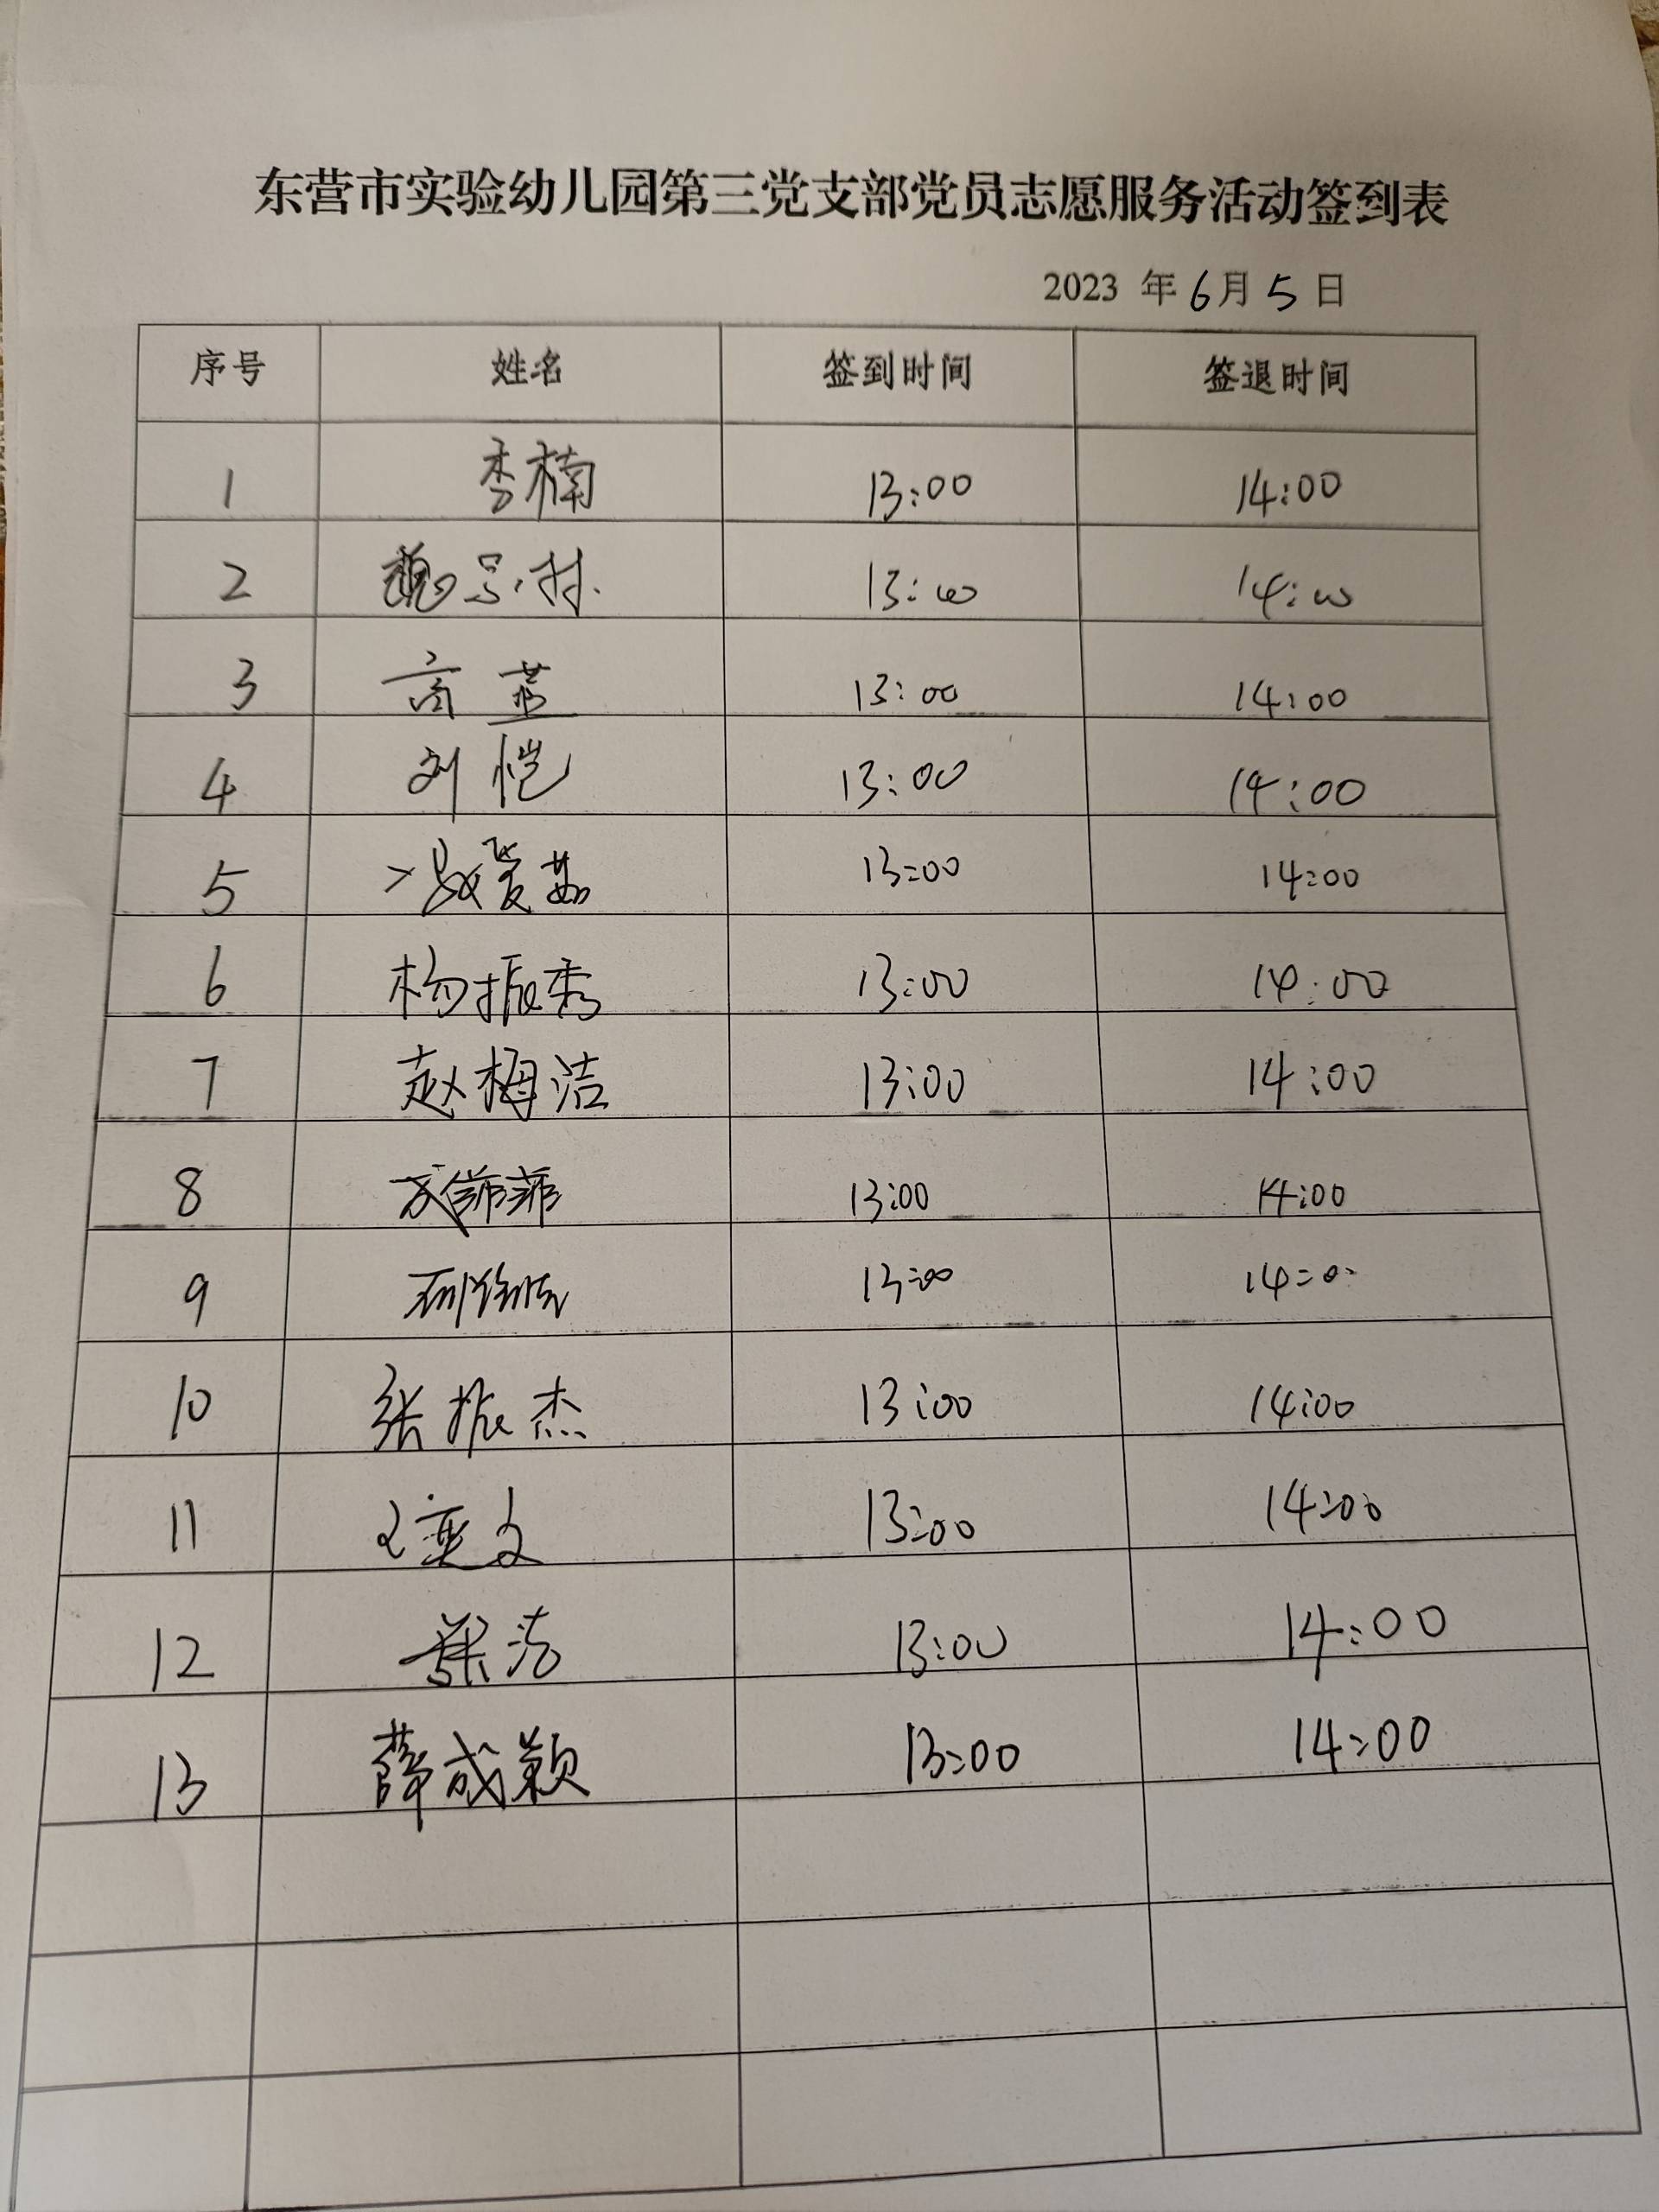 东营市实验幼儿园第三党支部党员志愿服务活动签到表
2023 年 6月 5 日
序号 姓名 签到时间 签退时间
1 李楠 13:00 14:00
2 13:00 14:00
3 高蓝 13:00 14:00
4 刘恺 13:00 14:00
5 13:00 14:00
6 杨振秀 13:00 14:00
7 赵梅洁 13:00 14:00
8 13:00 14:00
9 13:00 14:00
10 张振杰 13:00 14:00
11 13:00 14:00
12 13:00 14:00
13 薛成颖 13:00 14:00